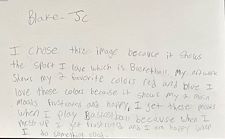 Blake - Jc
I chose this image because it shows
the sport I love which is Basketball. My artwork
shows my 2 favorite colors red and blue I
love those colors because it shows my 2 main
moods frustrated and happy. I get these moods
when I play Basketball because when I
mess up I get frustrated and I am happy when
I do something good.